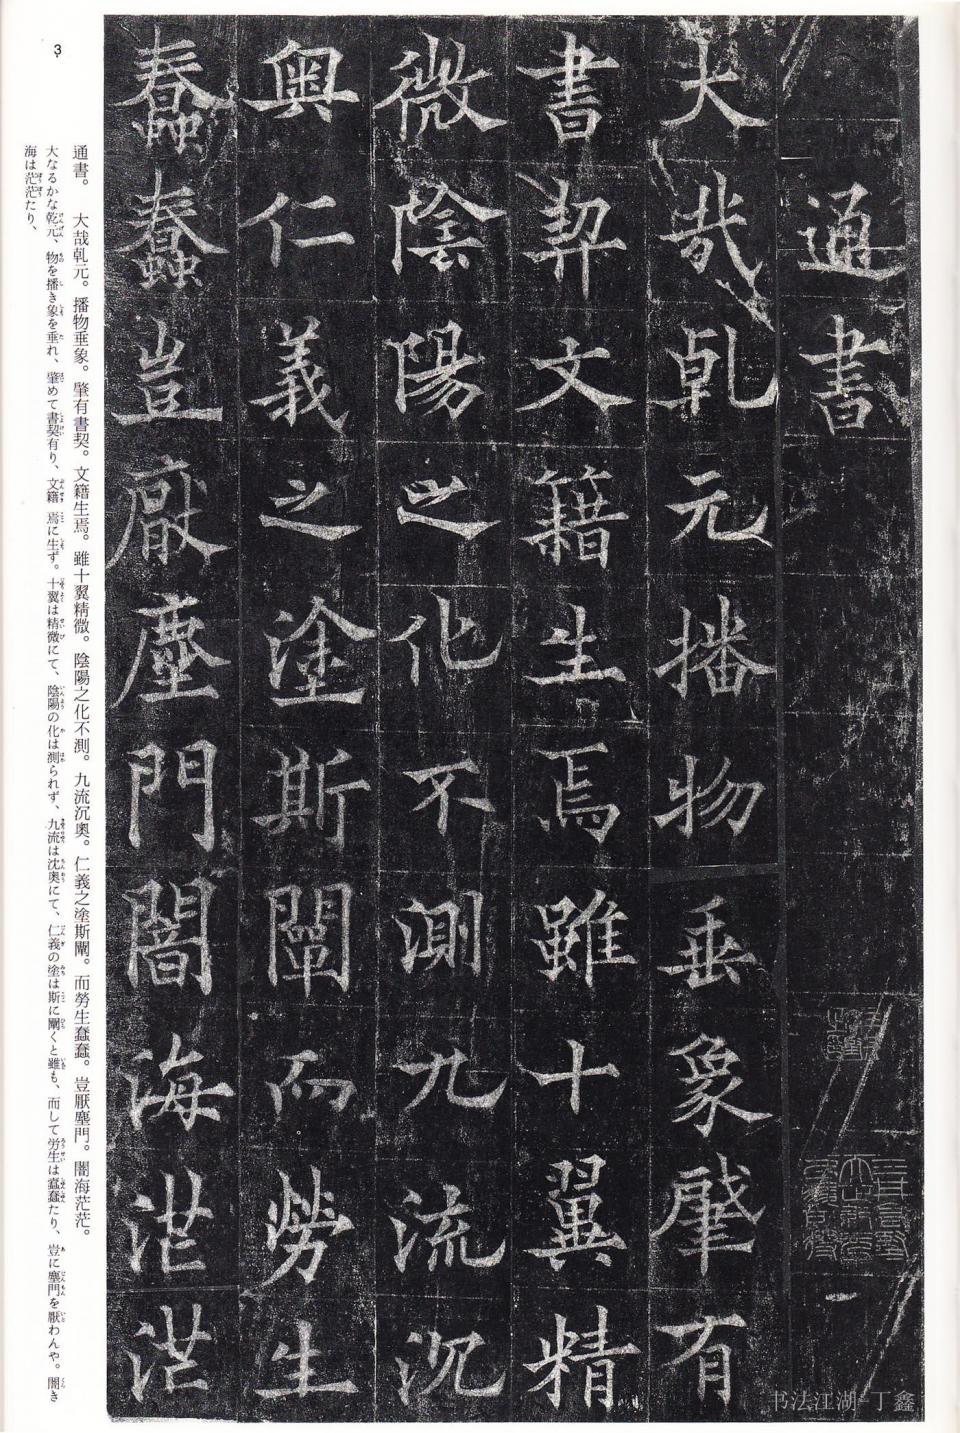 通書
大哉乹元播物垂象肇有
書契文籍生焉雖十翼精
微陰陽之化不測九流沉
奧仁義之塗斯闡而勞生
蠢蠢豈厭塵門闇海茫茫
3
通書。　大哉乹元。播物垂象。肇有書契。文籍生焉。雖十翼精微。陰陽之化不測。九流沉奧。仁義之塗斯闡。而勞生蠢蠢。豈厭塵門。闇海茫茫。
大なるかな乾元、物を播き象を垂れ、肇めて書契有り、文籍焉に生ず。十翼は精微にて、陰陽の化は測られず、九流は沈奧にて、仁義の塗は斯に闡くと雖も、而して労生は蠢蠢たり、豈に塵門を厭わんや。闇き
海は茫茫たり、
书法江湖-丁鑫